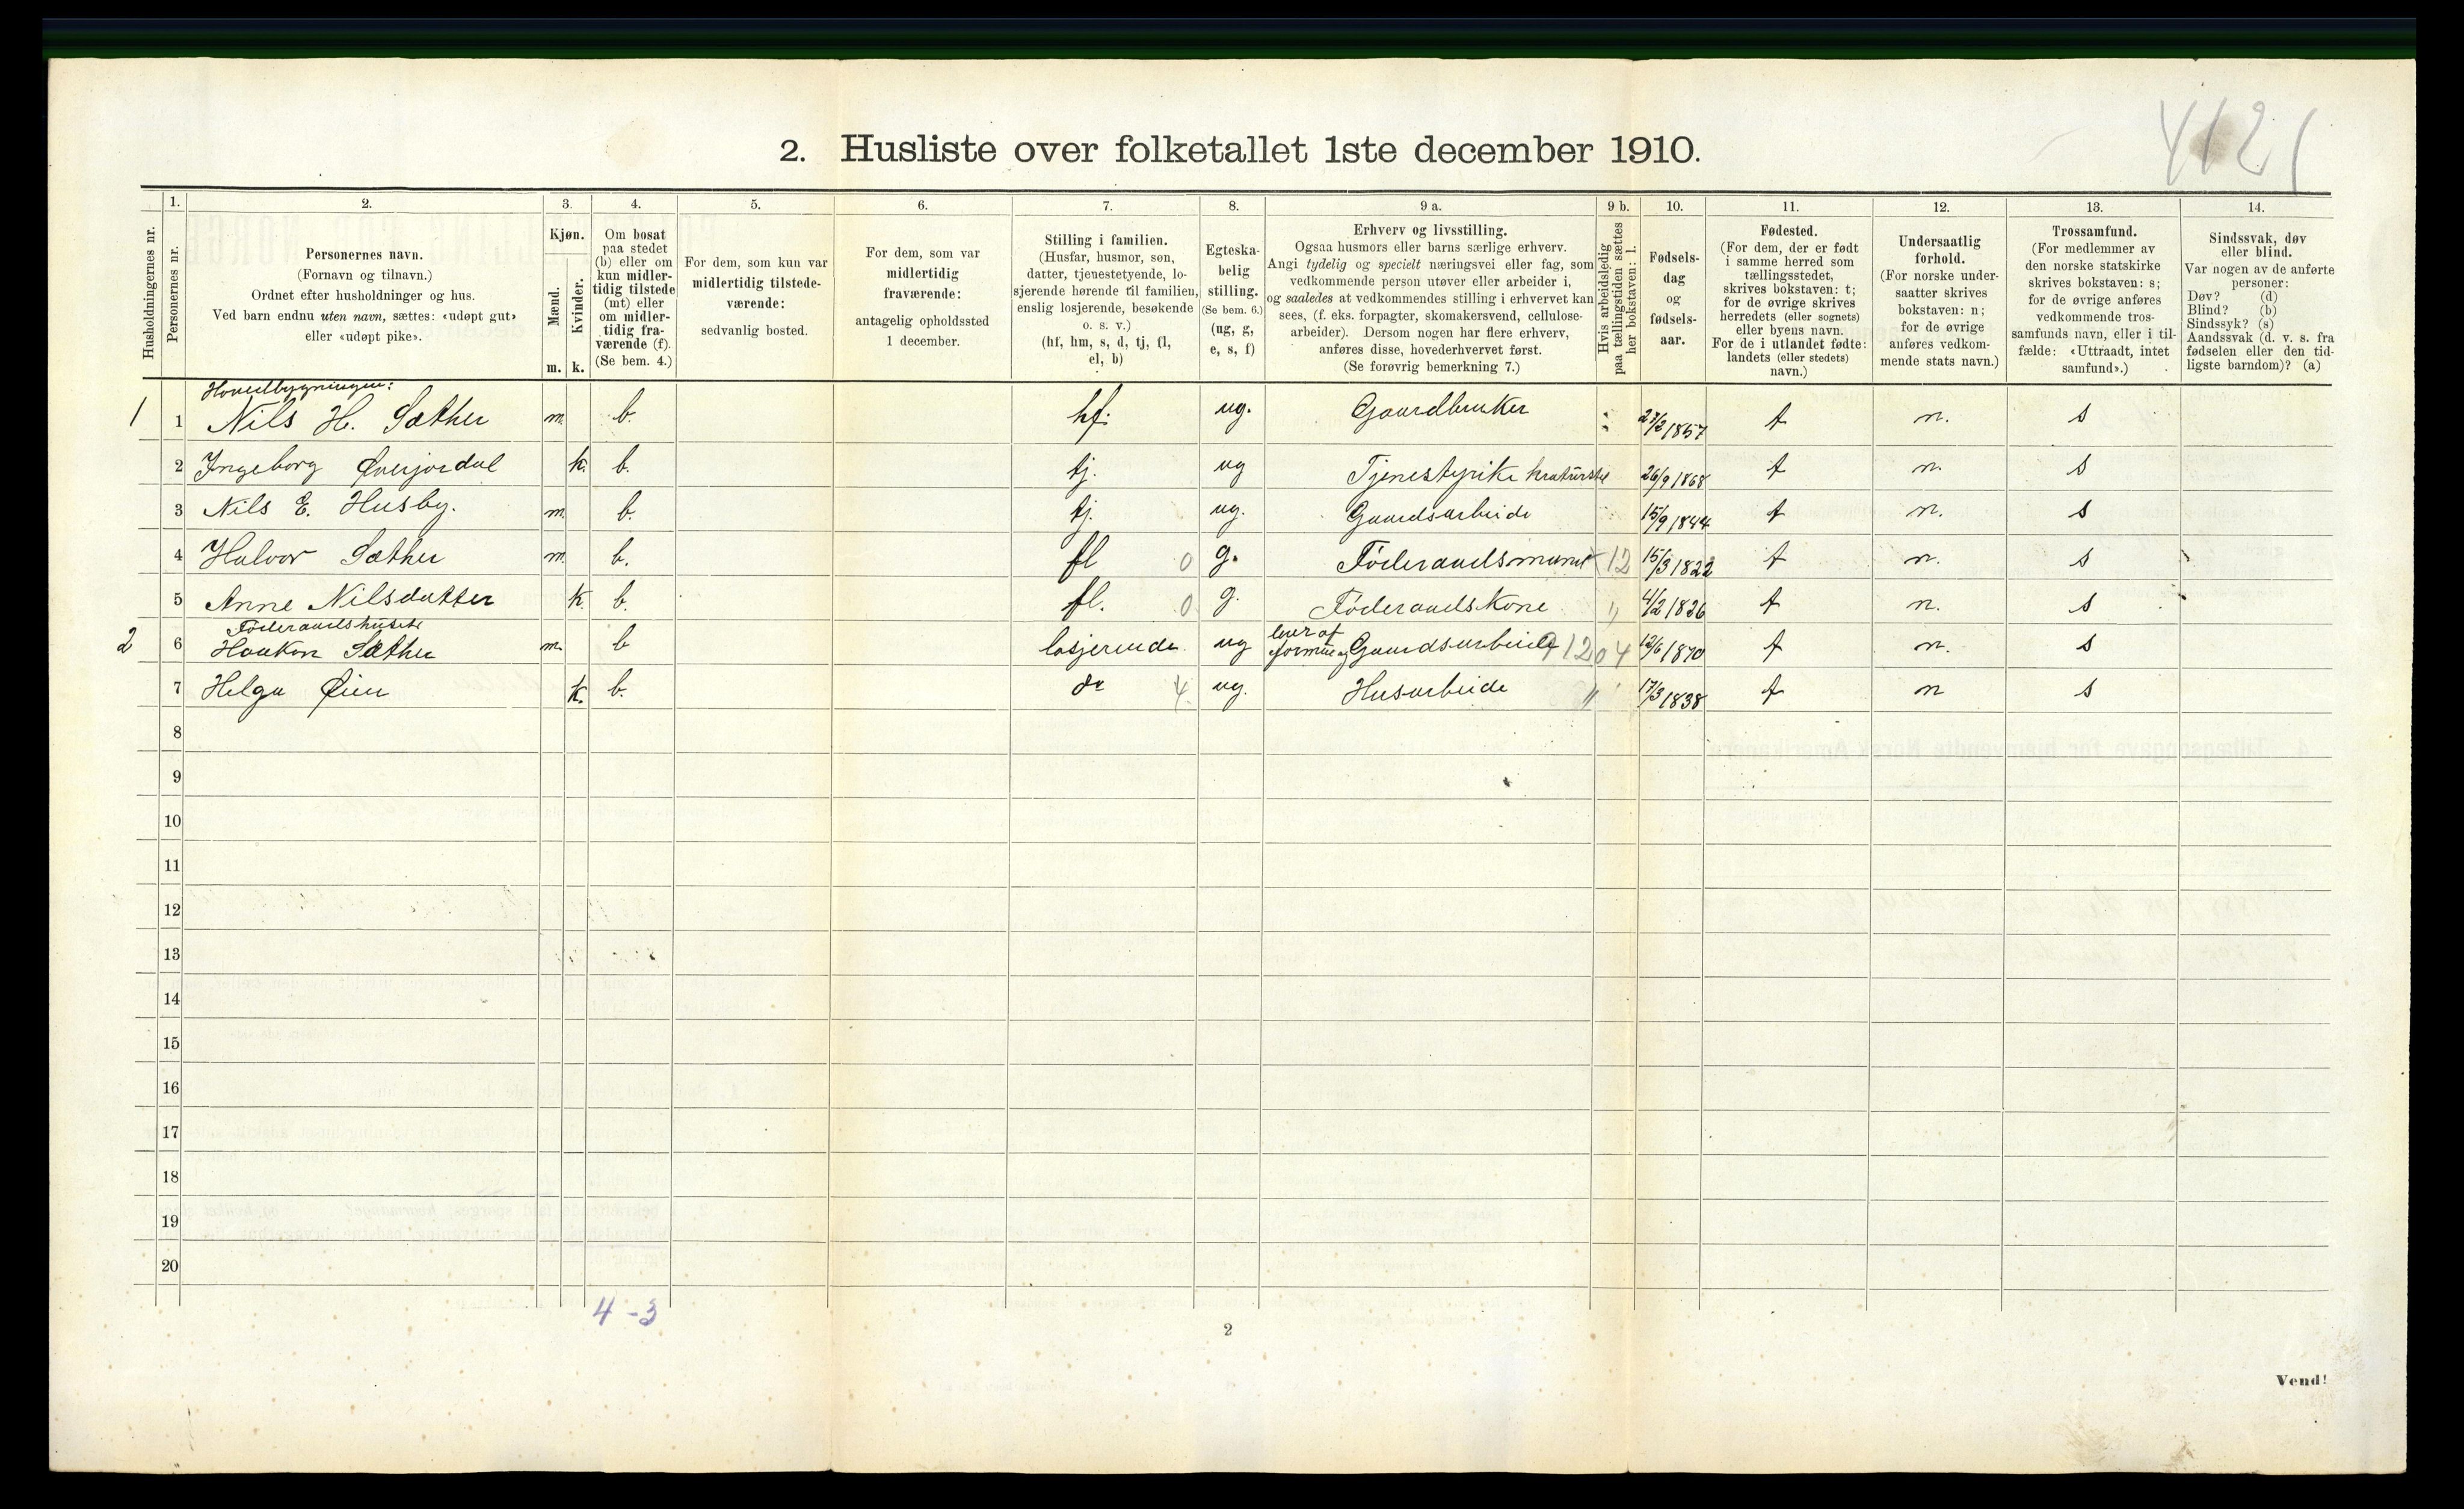 4121
2. Husliste over folketallet 1ste december 1910.
Husholdningernes nr.
1.
Personernes nr.
2.
Personernes navn.
(Fornavn og tilnavn.)
Ordnet efter husholdninger og hus.
Ved barn endnu uten navn, sættes: «udøpt gut»
eller «udøpt pike».
3.
Kjøn.
Mænd.
Kvinder.
m. k.
4.
Om bosat
paa stedet
(b) eller om
kun midler-
tidig tilstede
(mt) eller
om midler-
tidig fra-
værende (f).
(Se bem. 4.)
5.
For dem, som kun var
midlertidig tilstede-
værende:
sedvanlig bosted.
6.
For dem, som var
midlertidig
fraværende:
antagelig opholdssted
1 december.
7.
Stilling i familien.
(Husfar, husmor, søn,
datter, tjenestetyende, lo-
sjerende hørende til familien,
enslig losjerende, besøkende
o. s. v.)
(hf, hm, s, d, tj, fl,
el, b)
8.
Egteska-
belig
stilling.
(Se bem. 6.)
(ug, g,
e, s, f)
9 a.
Erhverv og livsstilling.
Ogsaa husmors eller barns særlige erhverv.
Angi tydelig og specielt næringsvei eller fag, som
vedkommende person utøver eller arbeider i,
og saaledes at vedkommendes stilling i erhvervet kan
sees, (f. eks. forpagter, skomakersvend, cellulose-
arbeider). Dersom nogen har flere erhverv,
anføres disse, hovederhvervet først.
(Se forøvrig bemerkning 7.)
9 b.
Hvis arbeidsledig
paa tællingstiden sættes
her bokstaven: l.
10.
Fødsels-
dag
og
fødsels-
aar.
11.
Fødested.
(For dem, der er født
i samme herred som
tællingsstedet,
skrives bokstaven: t;
for de øvrige skrives
herredets (eller sognets)
eller byens navn.
For de i utlandet fødte:
landets (eller stedets)
navn.)
12.
Undersaatlig
forhold.
(For norske under-
saatter skrives
bokstaven: n;
for de øvrige
anføres vedkom-
mende stats navn.)
13.
Trossamfund.
(For medlemmer av
den norske statskirke
skrives bokstaven: s;
for de øvrige anføres
vedkommende tros-
samfunds navn, eller i til-
fælde: «Uttraadt, intet
samfund».)
14.
Sindssvak, døv
eller blind.
Var nogen av de anførte
personer:
Døv? (d)
Blind? (b)
Sindssyk? (s)
Aandssvak (d. v. s. fra
fødselen eller den tid-
ligste barndom)? (a)
Hovedbygningen:
1 1 Nils H. Sæther m. b. hf. ug. Gaardbruker 27/2 1857 t n. s
2 Ingeborg Øverjordal k. b. tj. ug Tjenestepike kreaturstel 26/9 1868 t n. s
3 Nils E. Husby. m. b. tj. ug. Gaardsarbeide 15/9 1844 t n. s
4 Halvor Sæther m. b. fl 0 g. Føderaadsmand 12 15/3 1822 t n. s
5 Anne Nilsdatter k. b. fl. 0 g. Føderaadskone " 4/2 1826 t n. s
Føderaadshuset
2 6 Haakon Sæther m. b losjerende ug lever af formue og Gaardsarbeide 12/6 1870 t n. s
7 Helga Øien k. b. do 4 ug. Husarbeide " 17/3 1838 t n s
8
9
10
11
12
13
14
15
16
17
18
19
20
4 - 3
2
Vend!